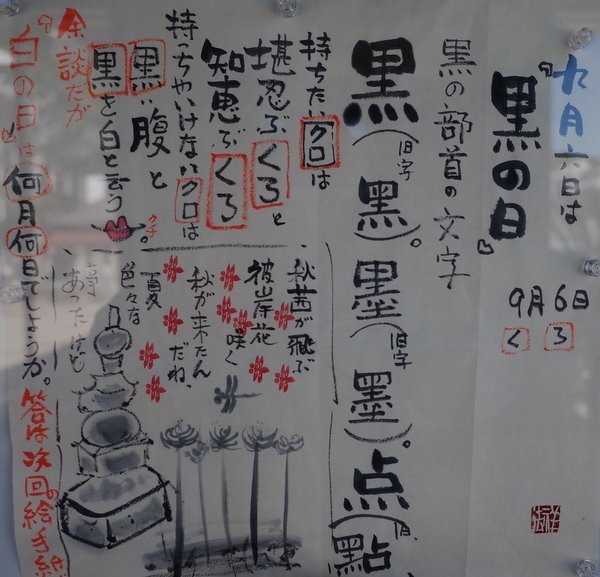 九月六日は
『黒の日』
9月6日
く ろ
黒の部首の文字
黒(旧字 黑)。墨(旧字 墨)。点(旧 點
持ちたいクロは
堪忍ぶくろと
知恵ぶくろ
持っちゃいけないクロは
黒い腹と
黒を白と云う
クチ。
秋茜が飛ぶ
彼岸花
咲く
秋が来たん
だね、
夏
色々な
事
あったけど
余談だが
『白の日』は何月何日でしょうか。答は次回の絵手紙